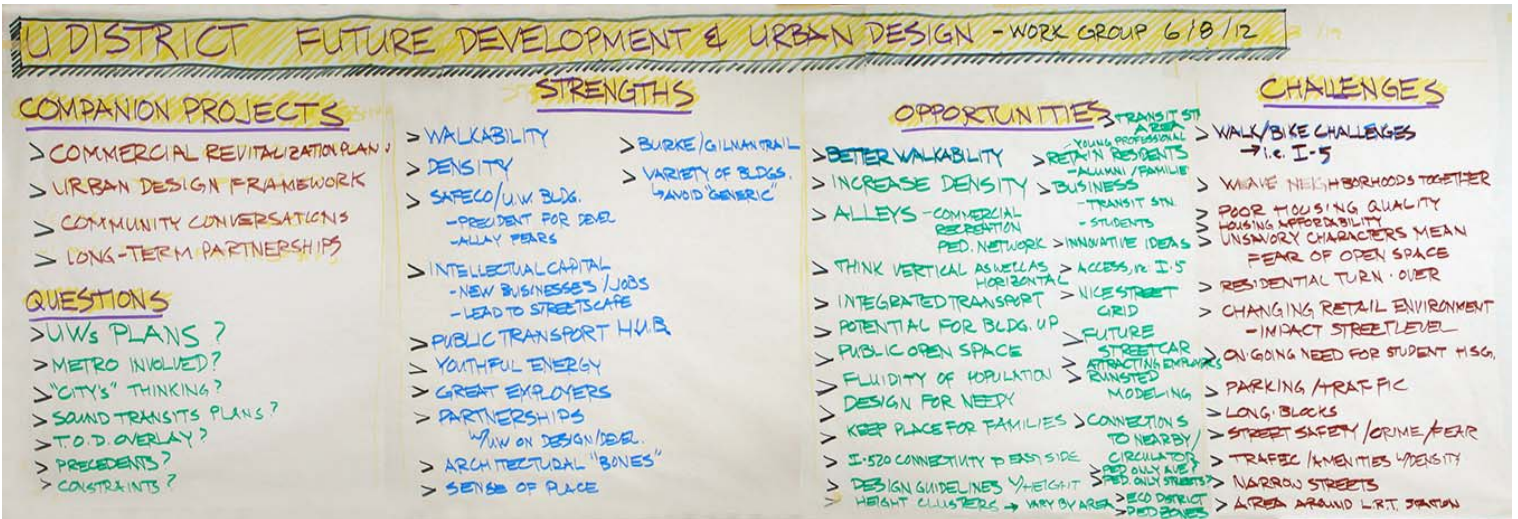 U DISTRICT FUTURE DEVELOPMENT & URBAN DESIGN - WORK GROUP 6/8/12
COMPANION PROJECTS
> COMMERCIAL REVITALIZATION PLAN
> URBAN DESIGN FRAMEWORK
> COMMUNITY CONVERSATIONS
> LONG-TERM PARTNERSHIPS
QUESTIONS
> UWs PLANS?
> METRO INVOLVED?
> "CITY'S" THINKING?
> SOUND TRANSITS PLANS?
> T.O.D. OVERLAY?
> PRECEDENTS?
> CONSTRAINTS?
STRENGTHS
> WALKABILITY
> DENSITY
> SAFECO/U.W. BLDG.
- PRECIDENT FOR DEVEL
- ALLAY FEARS
> INTELLECTUAL CAPITAL
- NEW BUSINESSES/JOBS
- LEAD TO STREETSCAPE
> PUBLIC TRANSPORT H.U.B.
> YOUTHFUL ENERGY
> GREAT EMPLOYERS
> PARTNERSHIPS
W/UW ON DESIGN/DEVEL.
> ARCHITECTURAL "BONES"
> SENSE OF PLACE
> BURKE/GILMAN TRAIL
> VARIETY OF BLDGS.
↳ AVOID "GENERIC"
OPPORTUNITIES
> BETTER WALKABILITY
> INCREASE DENSITY
> ALLEYS - COMMERCIAL
RECREATION
PED. NETWORK
> THINK VERTICAL AS WELL AS
HORIZONTAL
> INTEGRATED TRANSPORT
> POTENTIAL FOR BLDG. UP
> PUBLIC OPEN SPACE
> FLUIDITY OF POPULATION
> DESIGN FOR NEEDY
> KEEP PLACE FOR FAMILIES
> I-520 CONNECTIVITY TO EASTSIDE
> DESIGN GUIDELINES W/HEIGHT
> HEIGHT CLUSTERS → VARY BY AREA
> TRANSIT STN
AREA
- YOUNG PROFESSIONAL
> RETAIN RESIDENTS
- ALUMNI/FAMILIE
> BUSINESS
- TRANSIT STN.
- STUDENTS
> INNOVATIVE IDEAS
> ACCESS, re I-5
> NICE STREET
GRID
> FUTURE
STREETCAR
> ATTRACTING EMPLOYERS
> RUNSTED
MODELING
> CONNECTIONS
TO NEARBY/
CIRCULATOR
> PED ONLY AVE?
> PED. ONLY STREETS?
> ECO DISTRICT
> PED ZONES
CHALLENGES
> WALK/BIKE CHALLENGES
→ i.e. I-5
> WEAVE NEIGHBORHOODS TOGETHER
> POOR HOUSING QUALITY
> HOUSING AFFORDABILITY
> UNSAVORY CHARACTERS MEAN
FEAR OF OPEN SPACE
> RESIDENTIAL TURN-OVER
> CHANGING RETAIL ENVIRONMENT
- IMPACT STREETLEVEL
> ON-GOING NEED FOR STUDENT HSG.
> PARKING/TRAFFIC
> LONG BLOCKS
> STREET SAFETY/CRIME/FEAR
> TRAFFIC/AMENITIES W/DENSITY
> NARROW STREETS
> AREA AROUND L.R.T. STATION